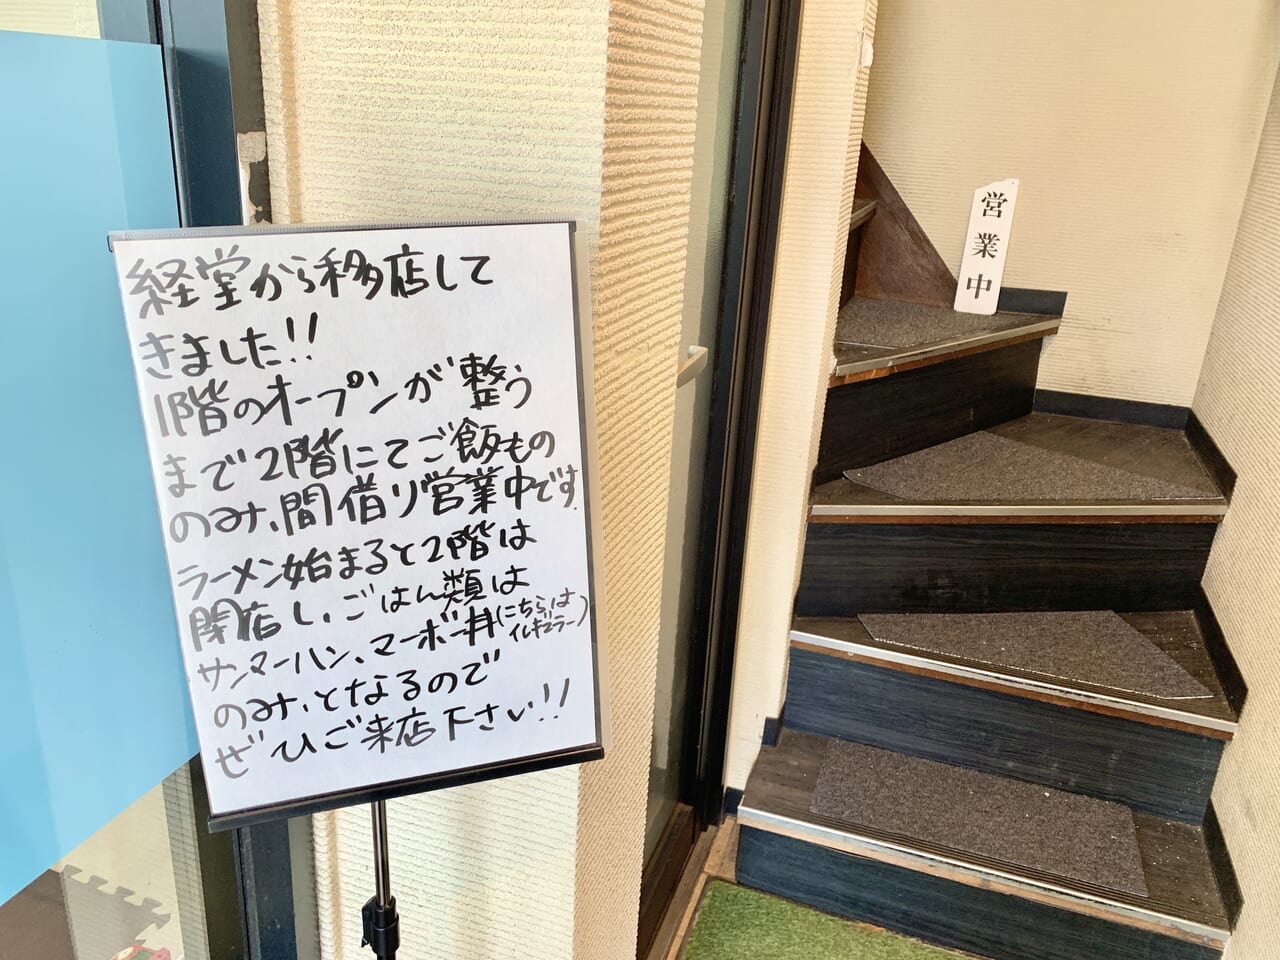 経堂から移店して
きました!!
1階のオープンが整う
まで2階にてご飯もの
のみ、間借り営業中です.
ラーメン始まると2階は
閉店し、ごはん類は
サンマーハン、マーボー丼(こちらは
イレギュラー)
のみ、となるので
ぜひご来店下さい!!
営業中